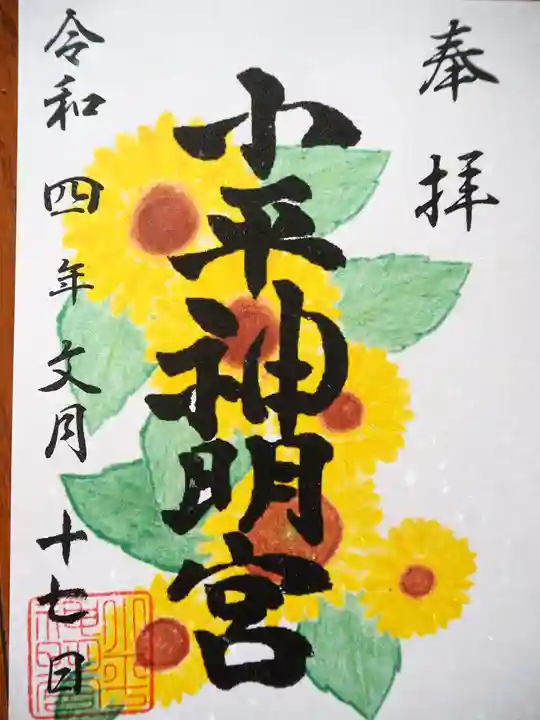 奉拝
小平神明宮
令和四年文月十七日